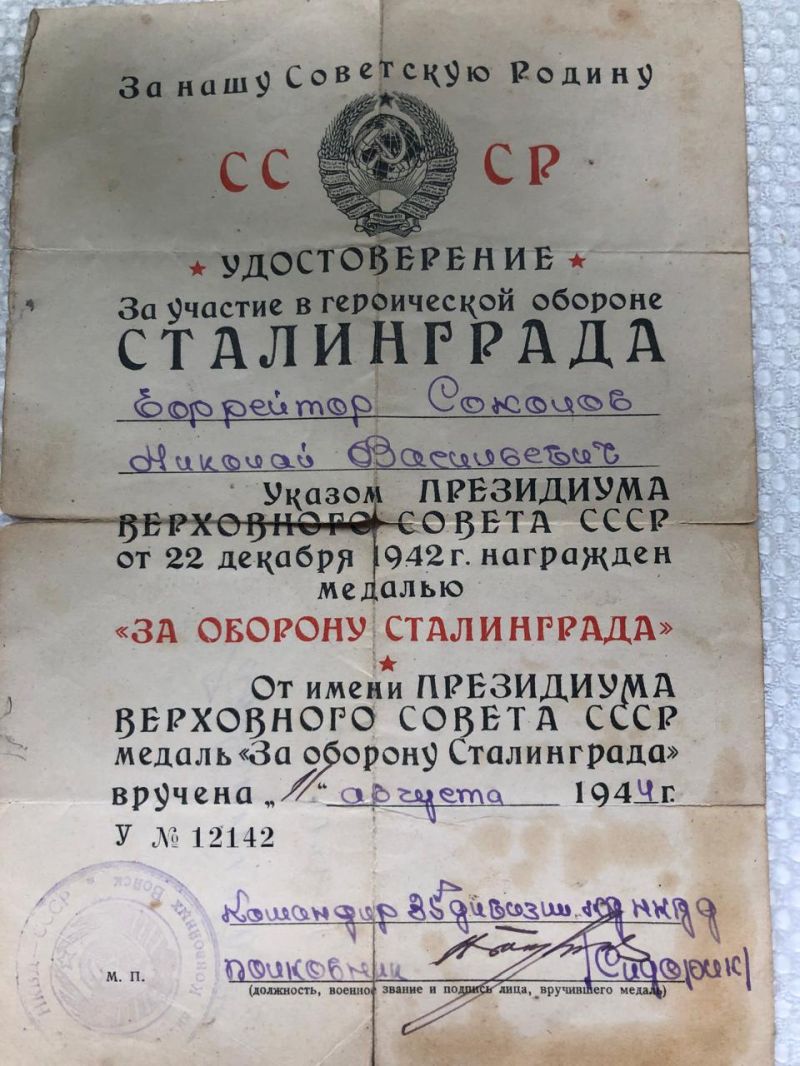 За нашу Советскую Родину
СССР
УДОСТОВЕРЕНИЕ
За участие в героической обороне
СТАЛИНГРАДА
Ефрейтор Соколов
Николай Васильевич
Указом ПРЕЗИДИУМА
ВЕРХОВНОГО СОВЕТА СССР
от 22 декабря 1942 г. награжден
медалью
«ЗА ОБОРОНУ СТАЛИНГРАДА»
От имени ПРЕЗИДИУМА
ВЕРХОВНОГО СОВЕТА СССР
медаль «За оборону Сталинграда»
вручена „11“ августа 1944 г.
У № 12142
Командир 35 дивизии НКВД
полковник (Сидорик)
М. П.
(должность, военное звание и подпись лица, вручившего медаль)
НКВД—СССР Конвойных Войск